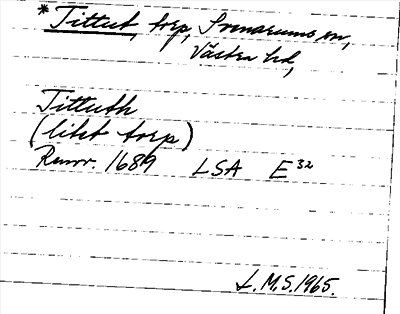 *Tittut, torp, Svenarums sn,
Västra hd,
Tittuth
(litet torp)
Renov. 1689 LSA E³²
L.M.S. 1965.